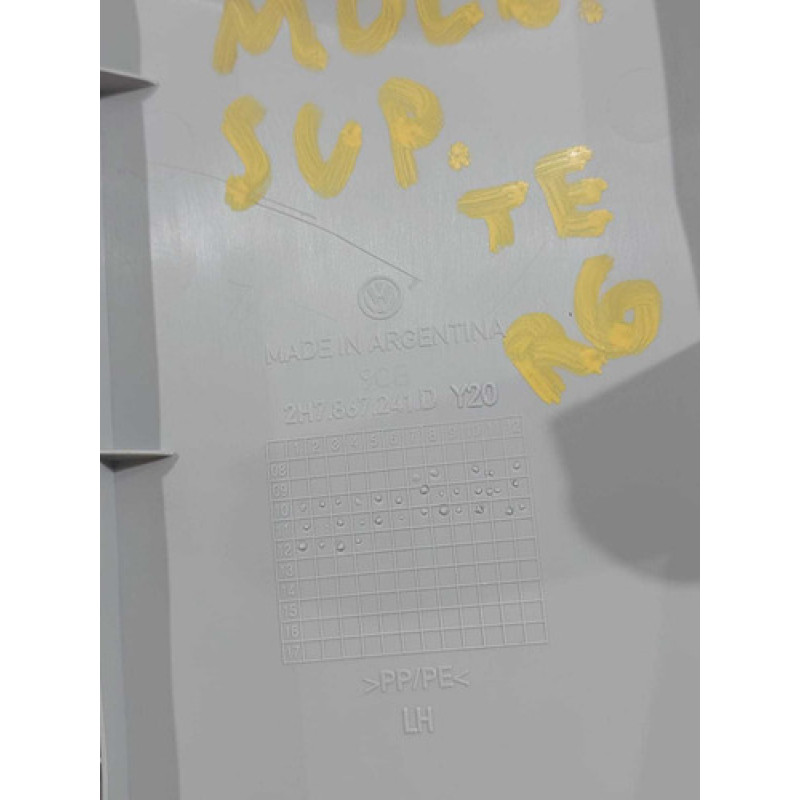 SUP.
TE
RG
MADE IN ARGENTINA
2H7.867.241.D Y20
1 2 3 4 5 6 7 8 9 10 11 12
08
09
10
11
12
13
14
15
16
17
>PP/PE<
LH